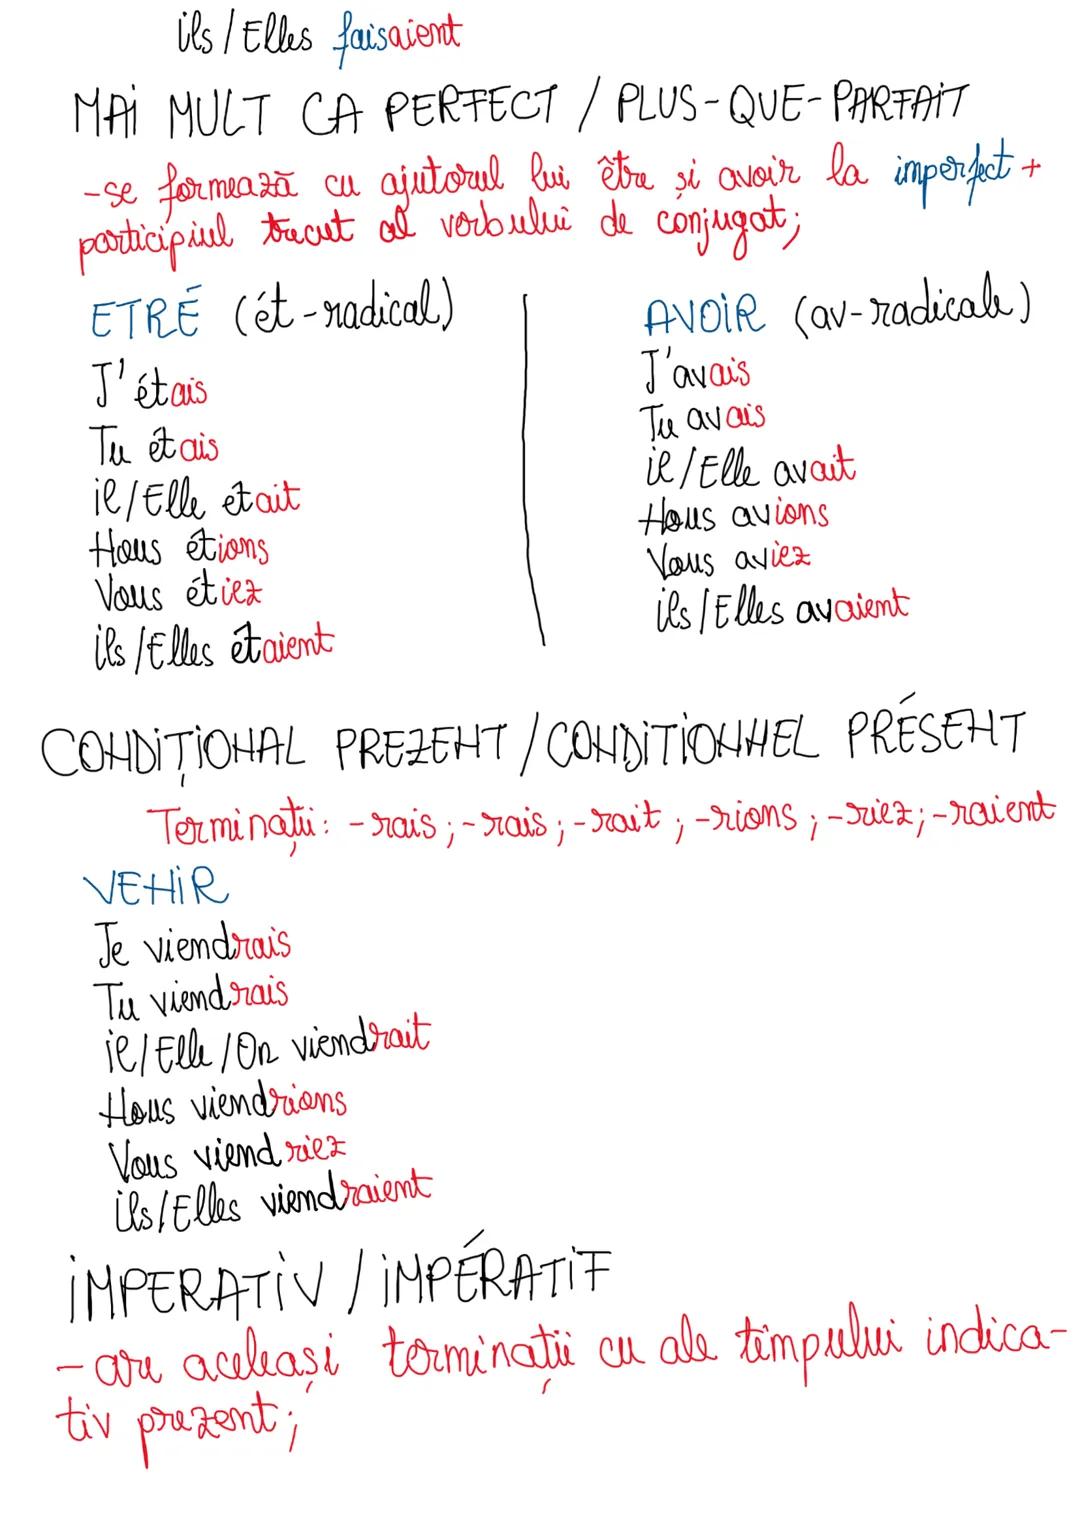 ils/Elles faisaient
MAI MULT CA PERFECT / PLUS-QUE-PARFAIT
-se formează cu ajutorul lui être și avoir la imperfect +
participiul trecut al verbului de conjugat;
ETRÉ (ét-radical)
J'étais
Tu étais
il/Elle etait
Nous étions
Vous étiez
ils/Elles étaient
AVOIR (av-radicale)
J'avais
Tu avais
il/Elle avait
Nous avions
Vous aviez
ils/Elles avaient
CONDIȚIONAL PREZENT / CONDITIONNEL PRÉSENT
Terminații: -rais; -rais; -rait; -rions; -riez; -raient
VENIR
Je viendrais
Tu viendrais
il/Elle/On viendrait
Nous viendrions
Vous viendriez
ils/Elles viendraient
IMPERATIV / IMPÉRATIF
- are aceleași terminații cu ale timpului indica-
tiv prezent;